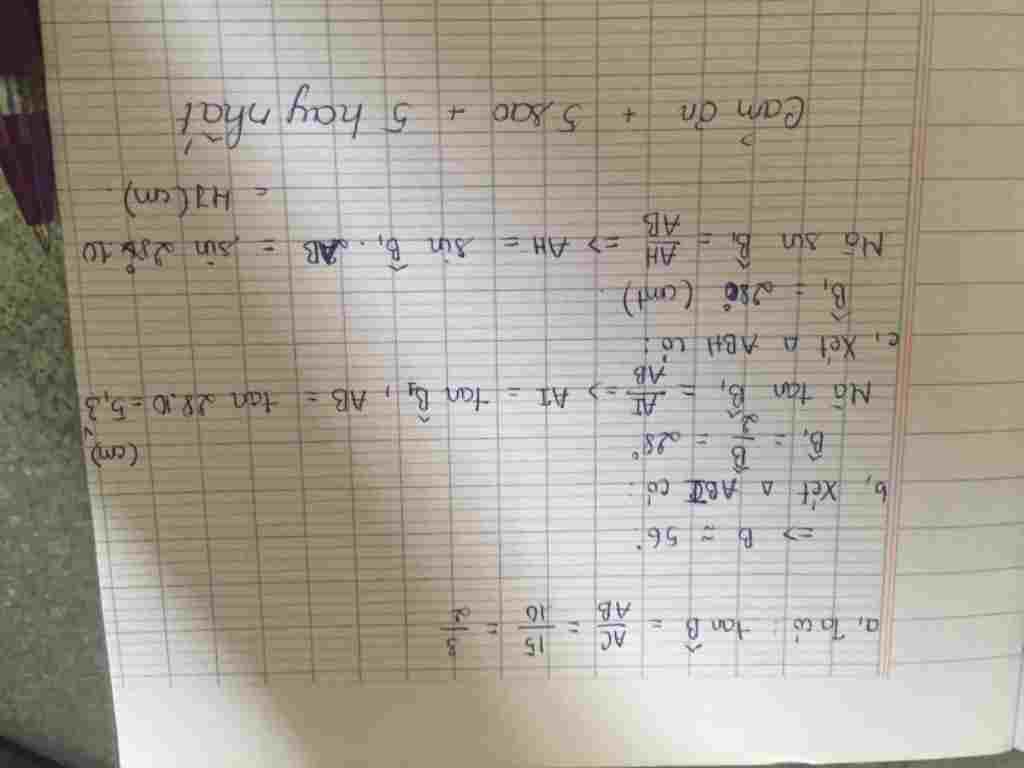 a, Ta có: tan B̂ = AC/AB = 15/10 = 3/2
=> B ≈ 56°
b, Xét Δ ABI có:
B̂₁ = B̂/2 = 28°
Mà tan B̂₁ = AI/AB => AI = tan B̂₁, AB = tan 28.10 = 5,3
(cm)
c, Xét Δ ABH có:
B̂₁ = 28° (cmt).
Mà sin B̂₁ = AH/AB => AH = sin B̂₁. AB = sin 28°.10
= (cm).
Cảm ơn + 5 sao + 5 hay nhất